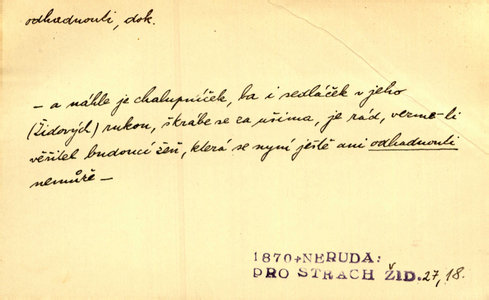 odhadnouti, dok.
– a náhle je chalupníček, ba i sedláček v jeho
(Židových) rukou, škrábe se za ušima, je rád, vezme-li
věřitel budoucí žeň, která se nyní ještě ani odhadnouti
nemůže –
1870+NERUDA:
PRO STRACH ŽID. 27, 18.